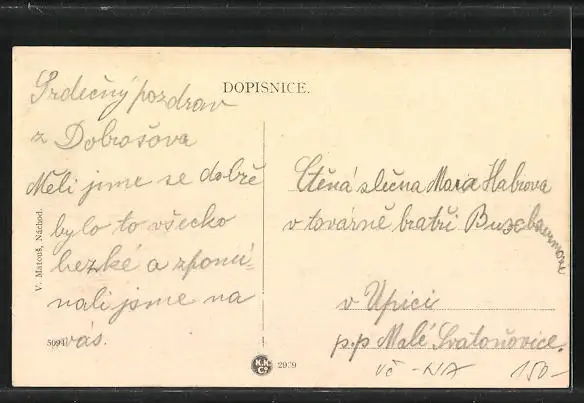 DOPISNICE.
Srdečný pozdrav
z Dobrošova
Měli jsme se dobře
bylo to všecko
hezké a zpomí-
nali jsme na
vás.
Ctěná slečna Marie Habrova
v továrně bratří
v Úpici
p.p Malé Svatoňovice.
vč - NA 150-
V. Matouš, Náchod.
5094
2929